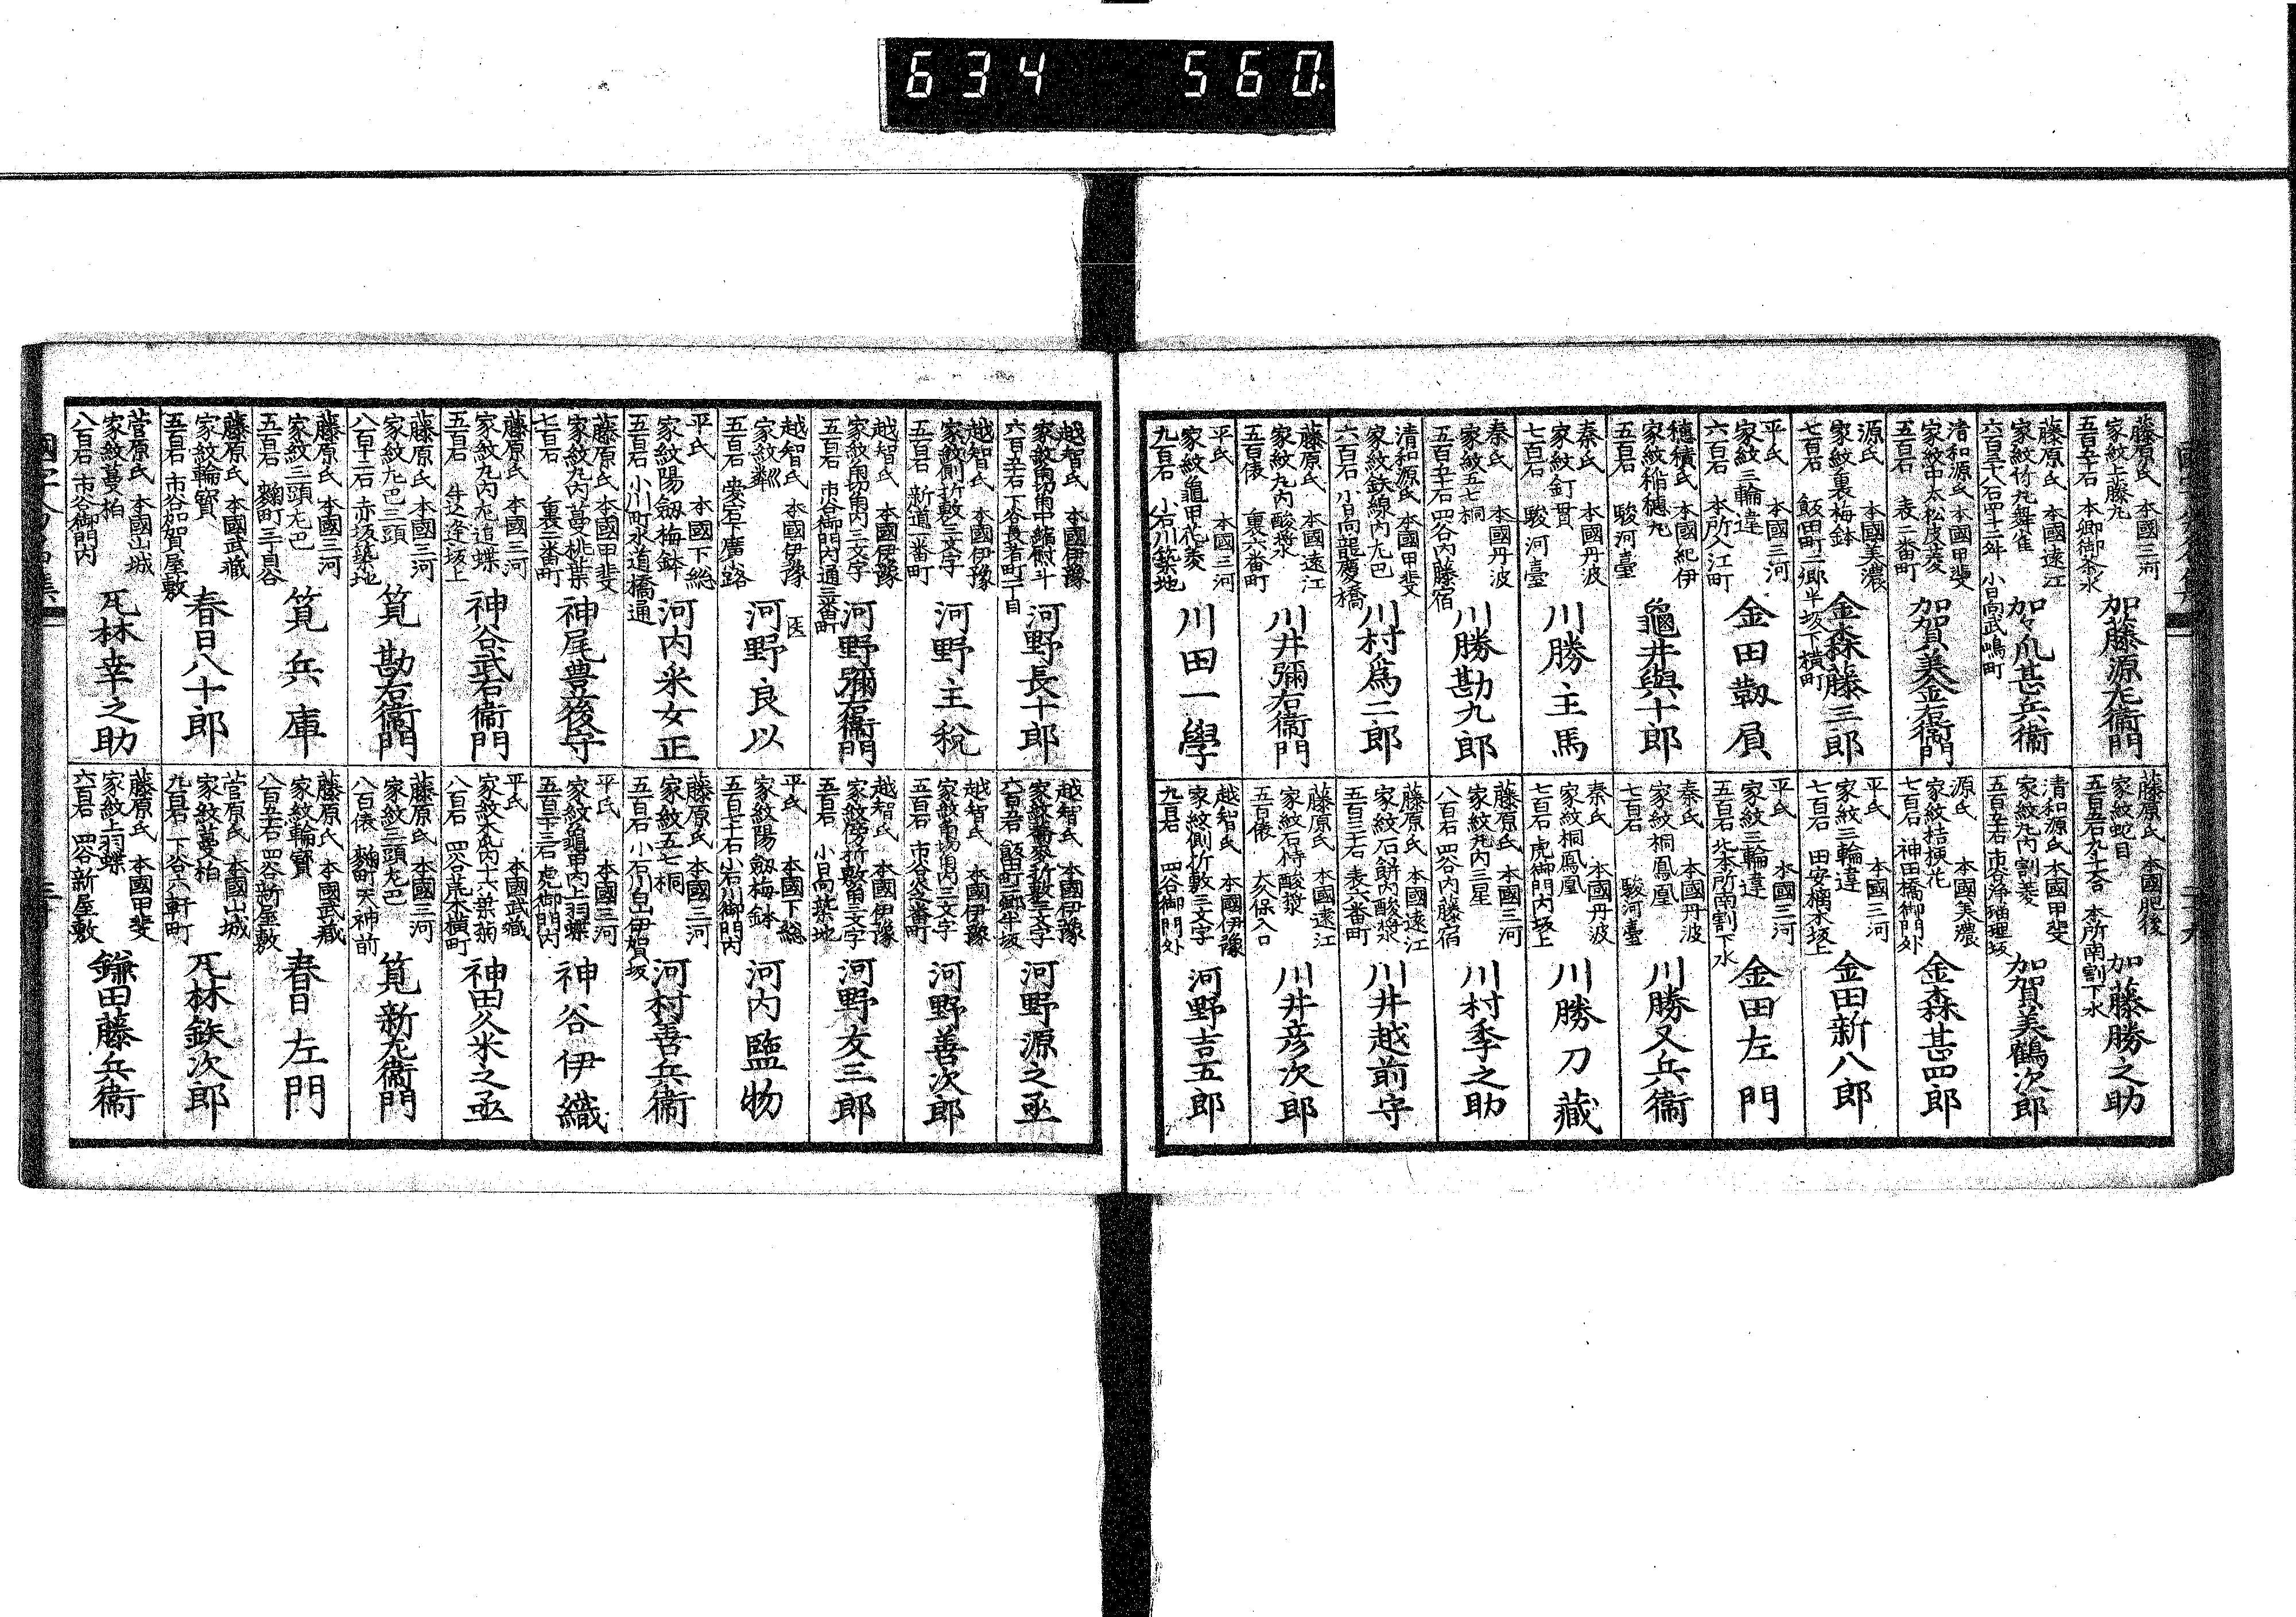 634 560.
藤原氏 本國三河
家紋上藤丸
五百五十石 本郷御茶水
加藤源左衛門
藤原氏 本國遠江
家紋竹丸舞雀
小日向武嶋町
加々爪甚兵衛
清和源氏 本國甲斐
家紋中太松皮菱
五百石 表二番町
加賀美金右衛門
源氏 本國美濃
家紋裏梅鉢
七百石 飯田町二郷半坂下横町
金森藤三郎
平氏 本國三河
家紋三輪違
六百石 本所入江町
金田靱負
穂積氏 本國紀伊
家紋稲穂丸
五百石 駿河臺
龜井與十郎
秦氏 本國丹波
家紋釘貫
七百石 駿河臺
川勝主馬
秦氏 本國丹波
家紋五七桐
五百五十石 四谷内藤宿
川勝勘九郎
清和源氏 本國甲斐
家紋鉄線内左巴
六百石 小日向龍慶橋
川村為二郎
藤原氏 本國遠江
家紋丸内酸漿
五百俵 裏六番町
川井彌右衛門
平氏 本國三河
家紋龜甲花菱
九百石 小石川築地
川田一學
藤原氏 本國肥後
家紋蛇目
本所南割下水
加藤勝之助
清和源氏 本國甲斐
家紋丸内割菱
五百五十石 市谷浄瑠理坂
加賀美鶴次郎
源氏 本國美濃
家紋桔梗花
七百石 神田橋御門外
金森甚四郎
平氏 本國三河
家紋三輪違
七百石 田安樋木坂上
金田新八郎
平氏 本國三河
家紋三輪違
五百石 北本所南割下水
金田左門
秦氏 本國丹波
家紋桐鳳凰
七百石 駿河臺
川勝又兵衛
秦氏 本國丹波
家紋桐鳳凰
七百石 虎御門内坂上
川勝刀藏
藤原氏 本國三河
家紋丸内三星
八百石 四谷内藤宿
川村季之助
藤原氏 本國遠江
家紋石餅内酸漿
五百三十石 表六番町
川井越前守
藤原氏 本國遠江
家紋石持酸漿
五百俵 大久保入口
川井彦次郎
越智氏 本國伊豫
家紋側折敷三文字
九百石 四谷御門外
河野吉五郎
越智氏 本國伊豫
下谷長者町一丁目
河野長十郎
越智氏 本國伊豫
家紋側折敷三文字
五百石 新道一番町
河野主税
越智氏 本國伊豫
家紋角切角内三文字
五百石 市谷御門内通三番町
河野彌右衛門
越智氏 本國伊豫
五百石 愛宕下廣小路
医
河野良以
平氏 本國下総
家紋陽劔梅鉢
五百石 小川町水道橋通
河内采女正
藤原氏 本國甲斐
家紋丸内蔓桃葉
七百石 裏三番町
神尾豊後守
藤原氏 本國三河
家紋丸内左追蝶
五百石 牛込逢坂上
神谷武右衛門
藤原氏 本國三河
家紋左巴三頭
八百十二石 赤坂築地
筧勘右衛門
藤原氏 本國三河
家紋三頭左巴
五百石 麴町三丁目谷
筧兵庫
藤原氏 本國武蔵
家紋輪寳
五百石 市谷加賀屋敷
春日八十郎
菅原氏 本國山城
家紋蔓柏
八百石 市谷御門内
瓦林幸之助
越智氏 本國伊豫
河野源之丞
越智氏 本國伊豫
家紋角切角内三文字
五百石
河野善次郎
越智氏 本國伊豫
家紋傍折敷角三文字
五百石 小日向築地
河野友三郎
平氏 本國下総
家紋陽劔梅鉢
五百七十石 小石川御門内
河内監物
藤原氏 本國三河
家紋五七桐
五百石 小石川白山伊賀坂
河村善兵衛
平氏 本國三河
家紋龜甲内上羽蝶
五百十三石 虎御門内
神谷伊織
平氏 本國武蔵
家紋木瓜内十六葉菊
八百石 四谷荒木横町
神田久米之丞
藤原氏 本國三河
家紋三頭左巴
八百俵 麴町天神前
筧新左衛門
藤原氏 本國武蔵
家紋輪寳
八百五十石 四谷新屋敷
春日左門
菅原氏 本國山城
家紋蔓柏
九百石 下谷六軒町
瓦林鉄次郎
藤原氏 本國甲斐
家紋上羽蝶
六百石 四谷新屋敷
鎌田藤兵衛